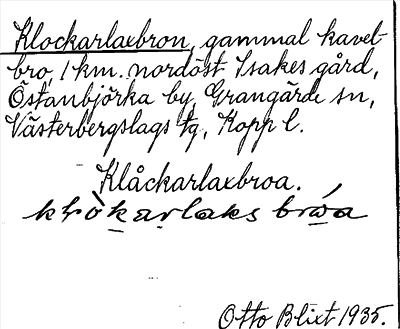 Klockarlaxbron, gammal kavel-
bro, 1 km. nordöst Isakes gård,
Östanbjörka by, Grangärde sn,
Västerbergslags tg, Kopp l.
Klåckarlaxbroa.
Otto Blixt 1935.